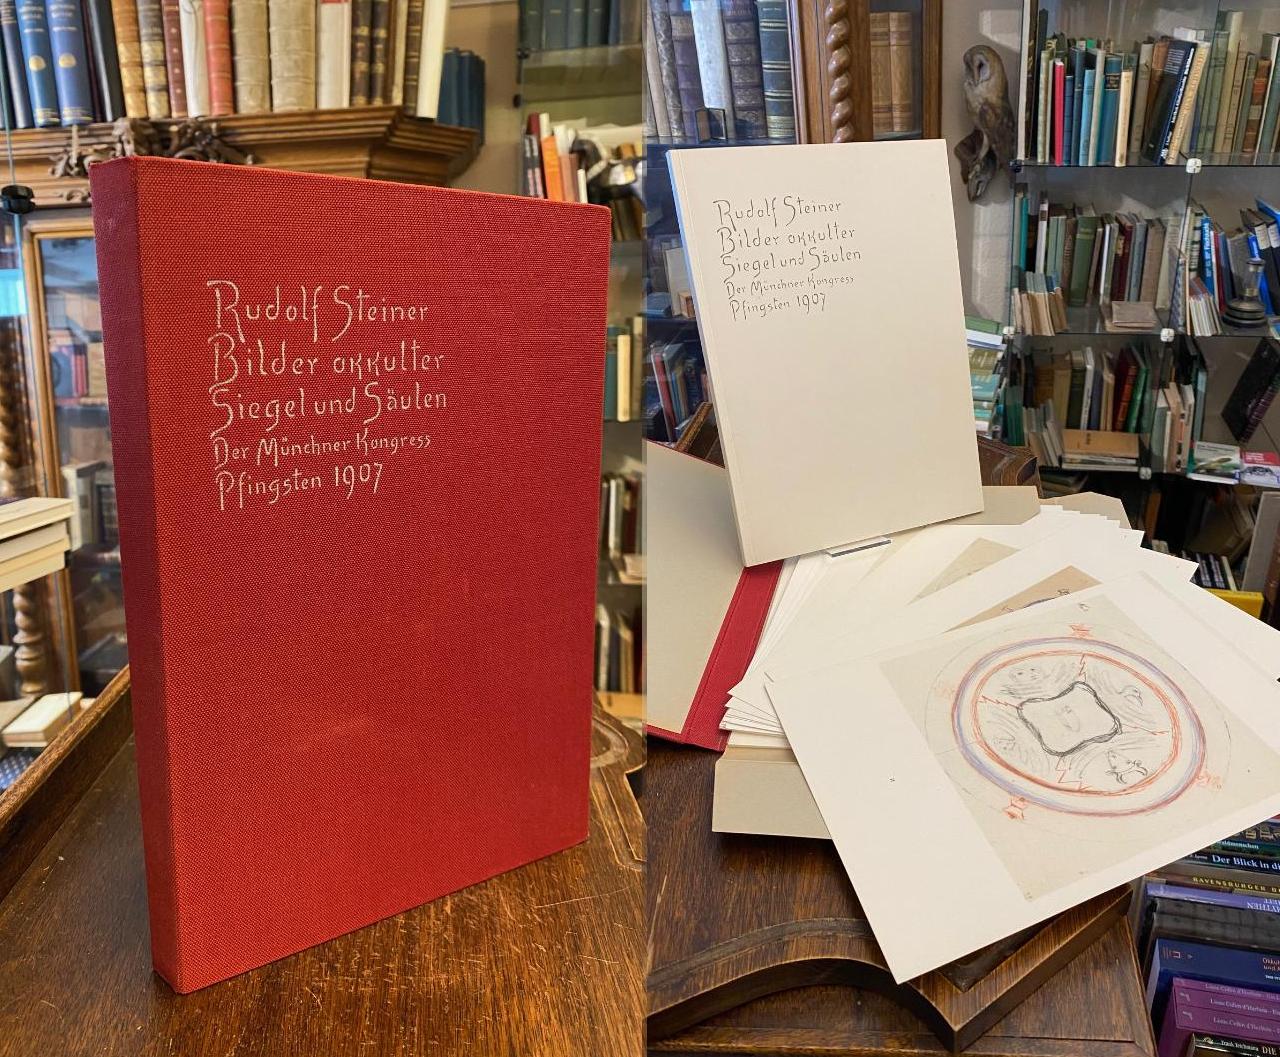 Rudolf Steiner
Bilder okkulter
Siegel und Säulen
Der Münchner Kongress
Pfingsten 1907
Rudolf Steiner
Bilder okkulter
Siegel und Säulen
Der Münchner Kongress
Pfingsten 1907
Der Blick in di
RAVENSBURGER
MYTHEN